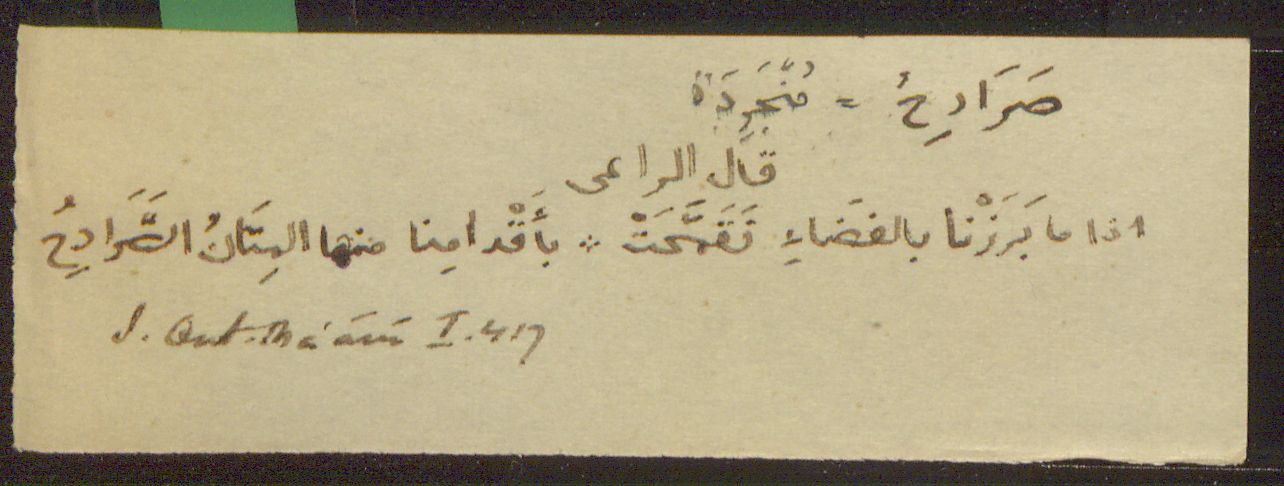 صَرَادِحُ = مُنْجَرِدَة
قال الراعى
اذا ما بَرَزْنا بالفضَاءِ تَقَحَّمَتْ ؞ بأَقْدامِنا منها المِتَانُ الصَّرَادِحُ
I. Qut. Ma'ānī I. 417